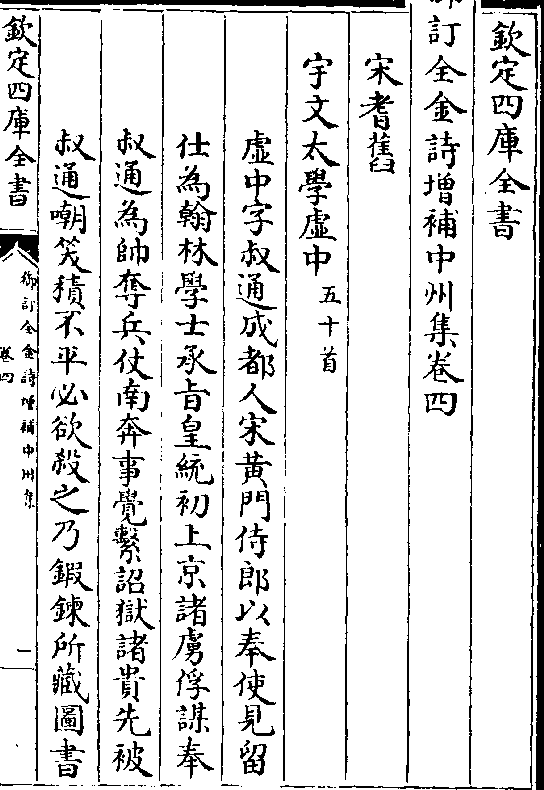 欽定四庫全書
御訂全金詩增補中州集卷四
宋耆舊
宇文太學虛中五十首
虛中字叔通成都人宋黃門侍郎以奉使見留
仕為翰林學士承旨皇統初上京諸虜俘謀奉
叔通為帥奪兵仗南奔事覺繫詔獄諸貴先被
叔通嘲笑積不平必欲殺之乃鍜鍊所藏圖書
欽定四庫全書
御訂全金詩增補中州集
卷四
一